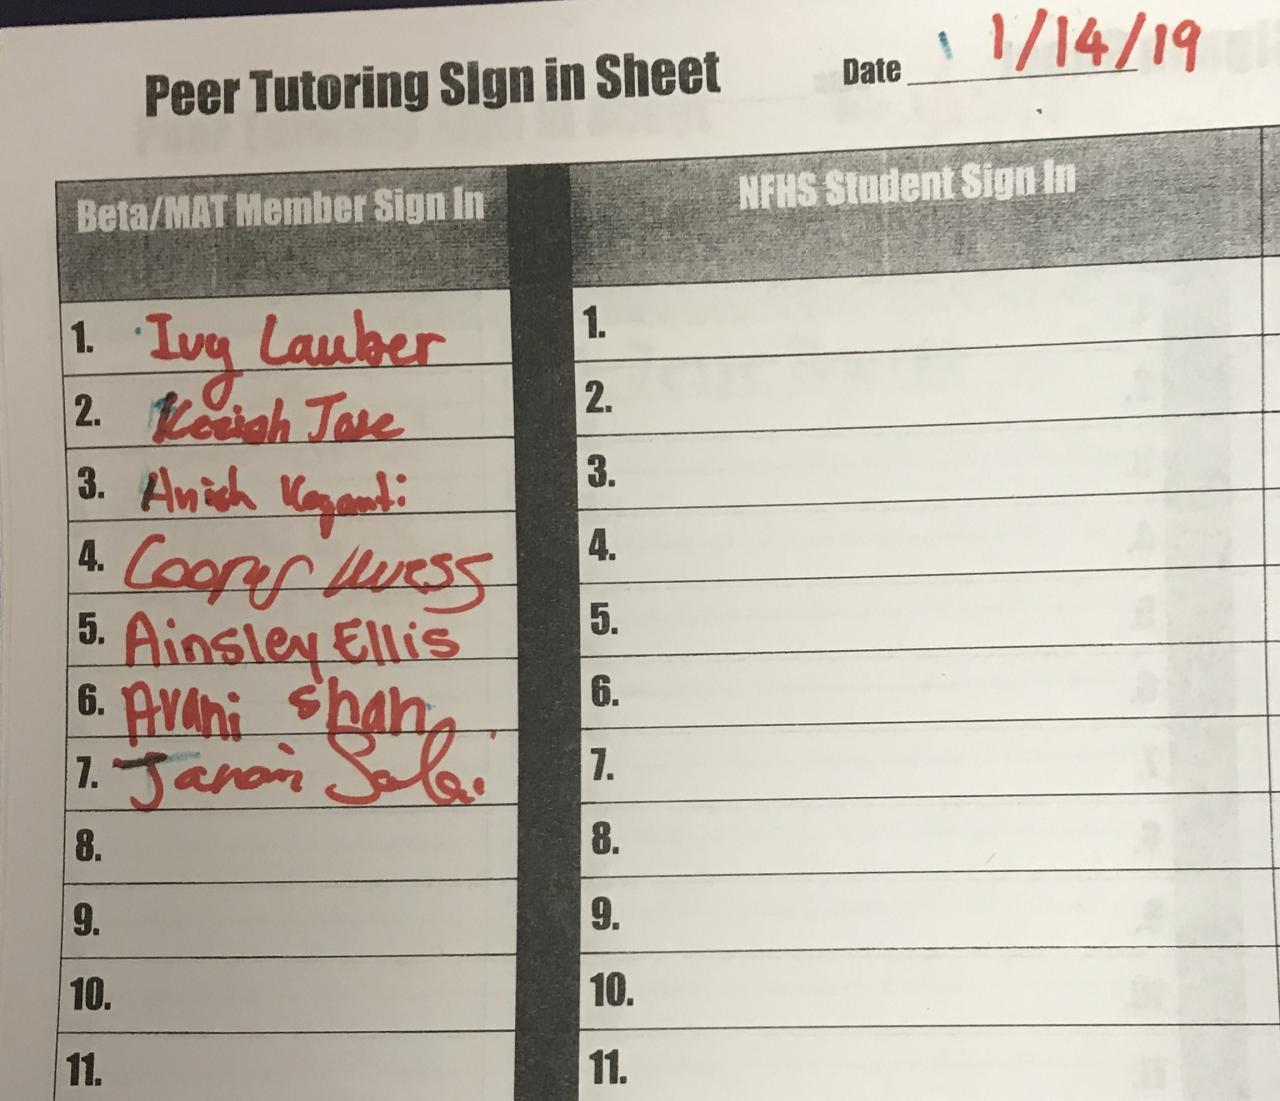 Peer Tutoring SIgn in Sheet Date 1/14/19
Beta/MAT Member Sign In NFHS Student Sign In
1. Ivy Lauber 1.
2. 2.
3. Anish 3.
4. Cooper 4.
5. Ainsley Ellis 5.
6. Avani Shah 6.
7. 7.
8. 8.
9. 9.
10. 10.
11. 11.